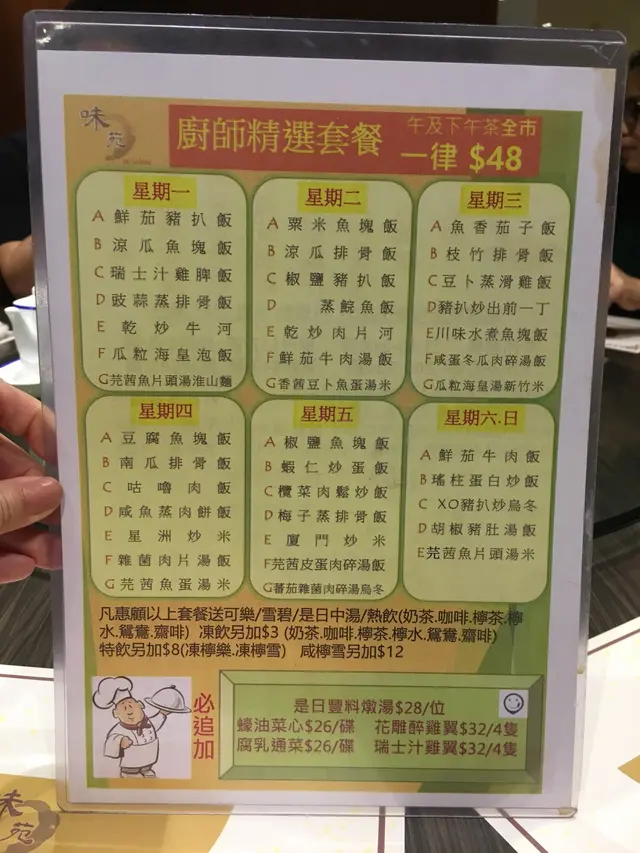 味苑
廚師精選套餐
午及下午茶全市
一律 $48
星期一
A 鮮茄豬扒飯
B 涼瓜魚塊飯
C 瑞士汁雞脾飯
D 豉蒜蒸排骨飯
E 乾炒牛河
F 瓜粒海皇泡飯
G 芫茜魚片頭湯淮山麵
星期二
A 粟米魚塊飯
B 涼瓜排骨飯
C 椒鹽豬扒飯
D 蒸鯇魚飯
E 乾炒肉片河
F 鮮茄牛肉湯飯
G 香茜豆卜魚蛋湯米
星期三
A 魚香茄子飯
B 枝竹排骨飯
C 豆卜蒸滑雞飯
D 豬扒炒出前一丁
E 川味水煮魚塊飯
F 咸蛋冬瓜肉碎湯飯
G 瓜粒海皇湯新竹米
星期四
A 豆腐魚塊飯
B 南瓜排骨飯
C 咕嚕肉飯
D 咸魚蒸肉餅飯
E 星洲炒米
F 雜菌肉片湯飯
G 芫茜魚蛋湯米
星期五
A 椒鹽魚塊飯
B 蝦仁炒蛋飯
C 欖菜肉鬆炒飯
D 梅子蒸排骨飯
E 廈門炒米
F 芫茜皮蛋肉碎湯飯
G 蕃茄雜菌肉碎湯烏冬
星期六.日
A 鮮茄牛肉飯
B 瑤柱蛋白炒飯
C XO豬扒炒烏冬
D 胡椒豬肚湯飯
E 芫茜魚片頭湯米
凡惠顧以上套餐送可樂/雪碧/是日中湯/熱飲(奶茶.咖啡.檸茶.檸
水.鴛鴦.齋啡) 凍飲另加$3 (奶茶.咖啡.檸茶.檸水.鴛鴦.齋啡)
特飲另加$8(凍檸樂.凍檸雪) 咸檸雪另加$12
必追加
是日豐料燉湯$28/位
蠔油菜心$26/碟 花雕醉雞翼$32/4隻
腐乳通菜$26/碟 瑞士汁雞翼$32/4隻
味苑